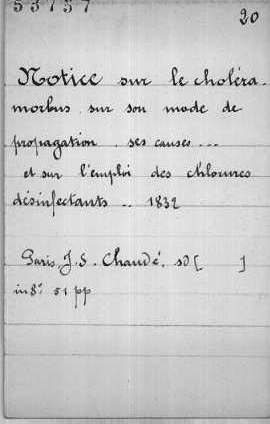 53757
20
Notice sur le choléra-
morbus sur son mode de
propagation . ses causes ...
et sur l'emploi des chlorures
désinfectants .. 1832
Paris, J. S. Chaudé, sd [ ]
in 8° 51 pp